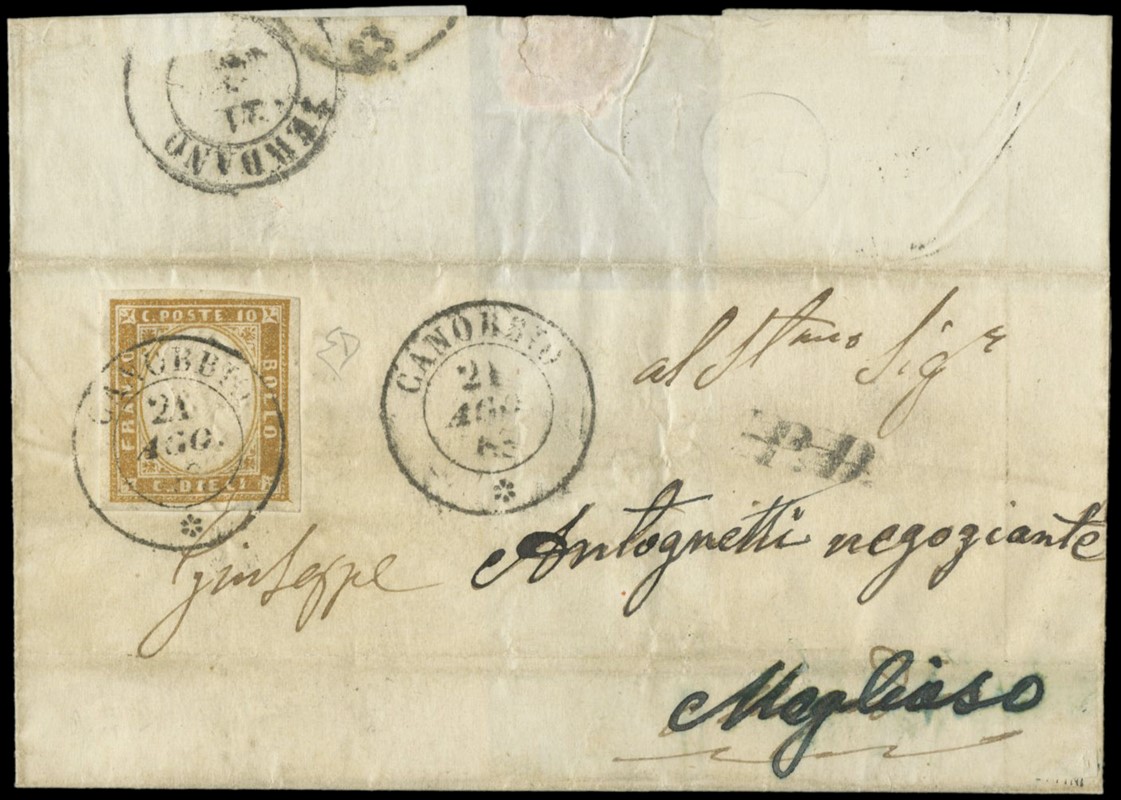 VERBANO
21
C. POSTE 10
FRANCO
BOLLO
C. DIECI
CANOBBIO
21
AGO
CANOBBIO
21
AGO
63
al Stmo Sigr
P.D.
Giuseppe Antognetti negoziante
Magliaso